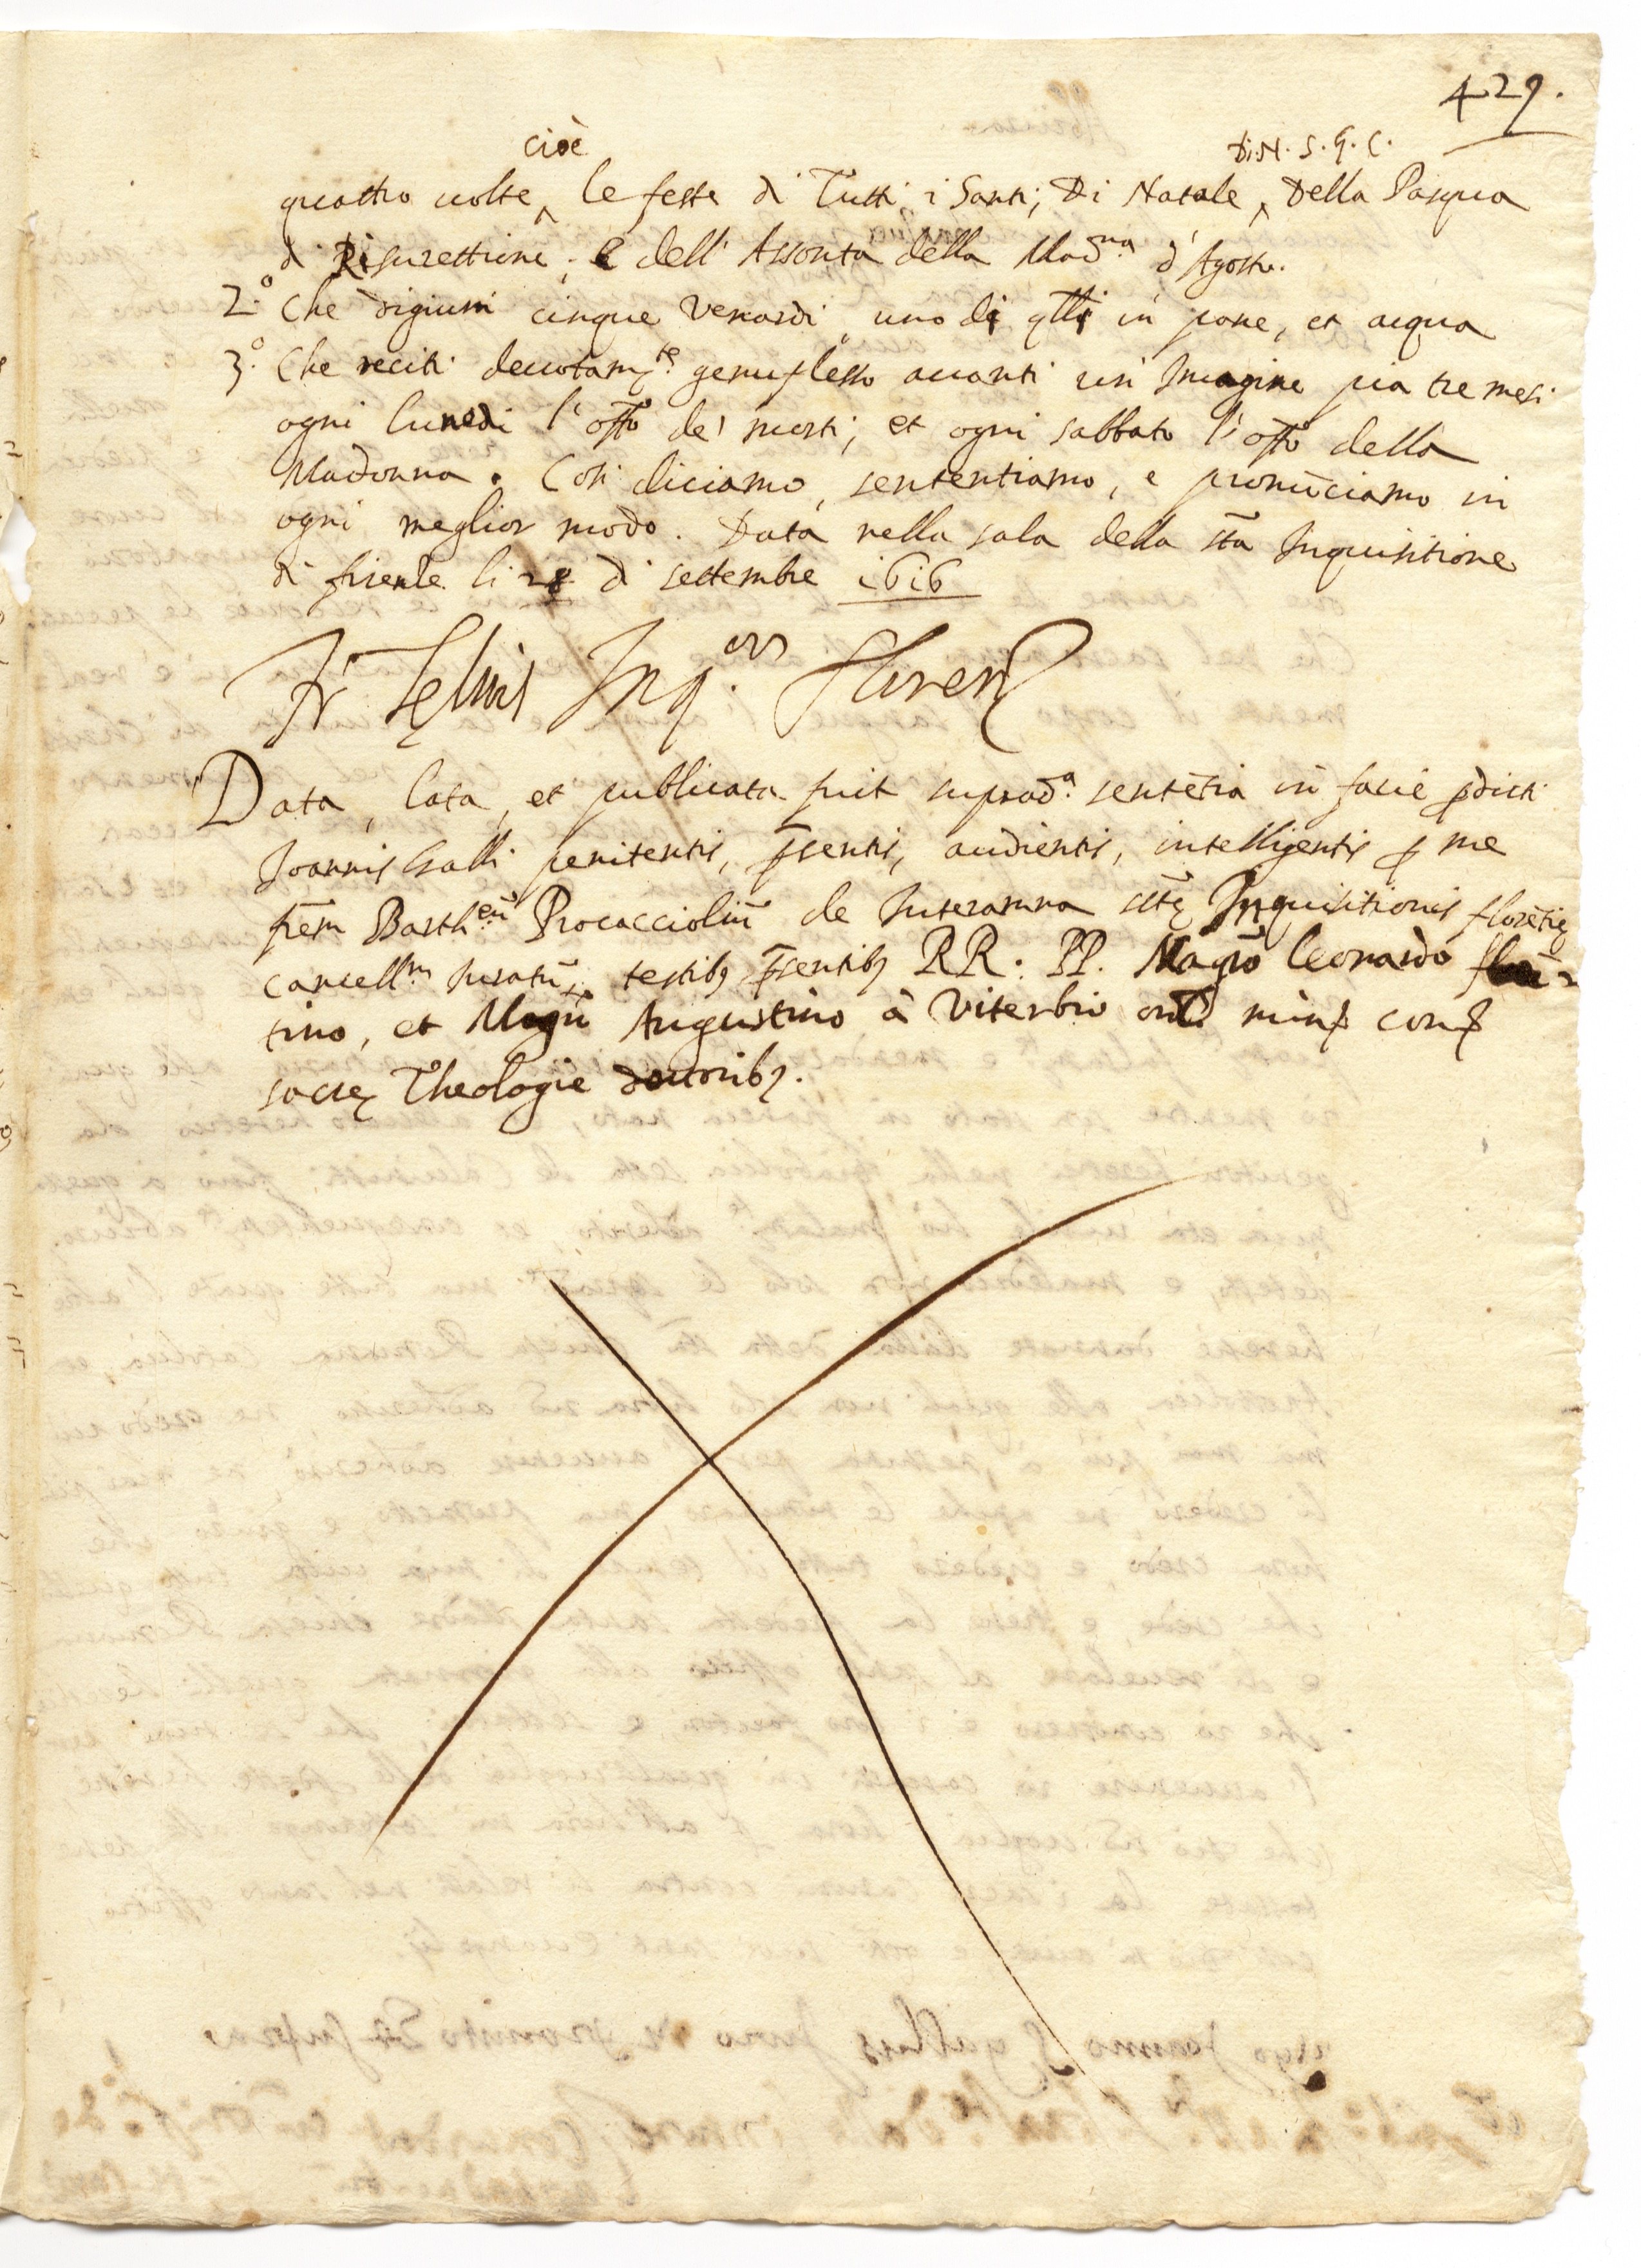 429.
cioè
Di.N. S. G. C.
quattro uolte ^ le feste di Tutti i Santi; Di Natale ^ Della Pasqua
di Risurettione, e dell' Assonta della Mad.na d'Agosto.
2.o Che digiuni cinque Venardi uno di qlli in pane, et acqua
3.o Che reciti deuotamte genuflesso auanti un' Imagine pia tre mesi
ogni lunedi l' offo de' morti; et ogni sabbato l' offo della
Madonna. Cosi diciamo, sententiamo, e pronūciamo in
ogni meglior modo. Data nella sala della sta Inquisitione
di firenle li 28 di settembre 1616
Fr Lelius Inq.or Floren
Data, lata, et publicata fuit suprad.a sentētia in facie pdicti
Joannis Galli penitentis, p̄sentis, audientis, intelligentis p me
frem Barth.eū Procacciolū de Interamna stę Inquisitionis florētię
cancell.m iuratū, testibȝ p̄sentibȝ RR. PP. Magro Leonardo
tino, et Magro Augustino à Viterbio ord min conȝ
sacrę Theologie doctoribȝ.